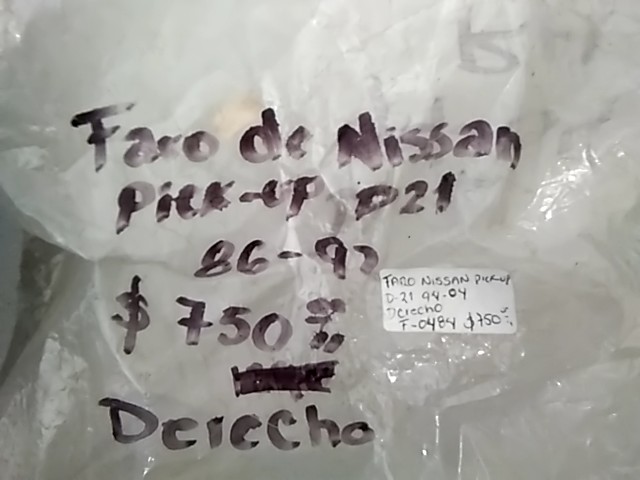 Faro de Nissan
Pick-up D21
86-93
$ 750 00
Derecho
FARO NISSAN PICK-UP
D-21 94-04
Derecho
F-0484 $750 00